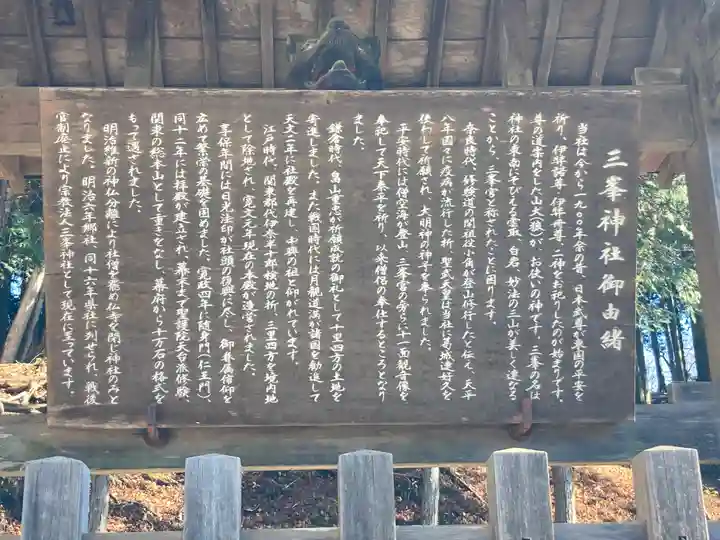 三峯神社御由緒
当社は今から一九〇〇年余の昔、日本武尊が東国の平安を
祈り、伊弉諾尊・伊弉册尊、二神をお祀りしたのが始まりです。
尊の道案内をした山犬(狼)が、お使いの神です。三峯の名は
神社の東南にそびえる雲取、白岩、妙法の三山が美しく連なる
ことから、三峯宮と称されたことに因ります。
奈良時代、修験道の開祖役小角が登山修行したと伝え、天平
八年国々に疫病が流行した折、聖武天皇は当社に葛城連好久を
使わして祈願され、大明神の神号を奉られました。
平安時代には僧空海が登山、三峯宮の傍らに十一面観音像を
奉祀して天下泰平を祈り、以来僧侶の奉仕するところとなり
ました。
鎌倉時代、畠山重忠が祈願成就の御礼として十里四方の土地を
寄進しました。また戦国時代には月観道満が諸国を勧進して
天文二年に社殿を再建し、中興の祖と仰がれています。
江戸時代、関東郡代伊奈半十郎検地の折、三里四方を境内地
として除地され、寛文元年現在の本殿が造営されました。
享保年間には日光法印が社頭の復興に尽し、御眷属信仰を
広め繁栄の基礎を固めました。寛政四年に随身門(仁王門)、
同十二年には拝殿が建立され、幕末まで聖護院天台派修験、
関東の総本山として重きをなし、幕府から十万石の格式を
もって遇されました。
明治維新の神仏分離により社僧を罷め仏寺を閉じ神社のみと
なりました。明治六年郷社、同十六年県社に列せられ、戦後
官制廃止により宗教法人三峯神社として現在に至っています。